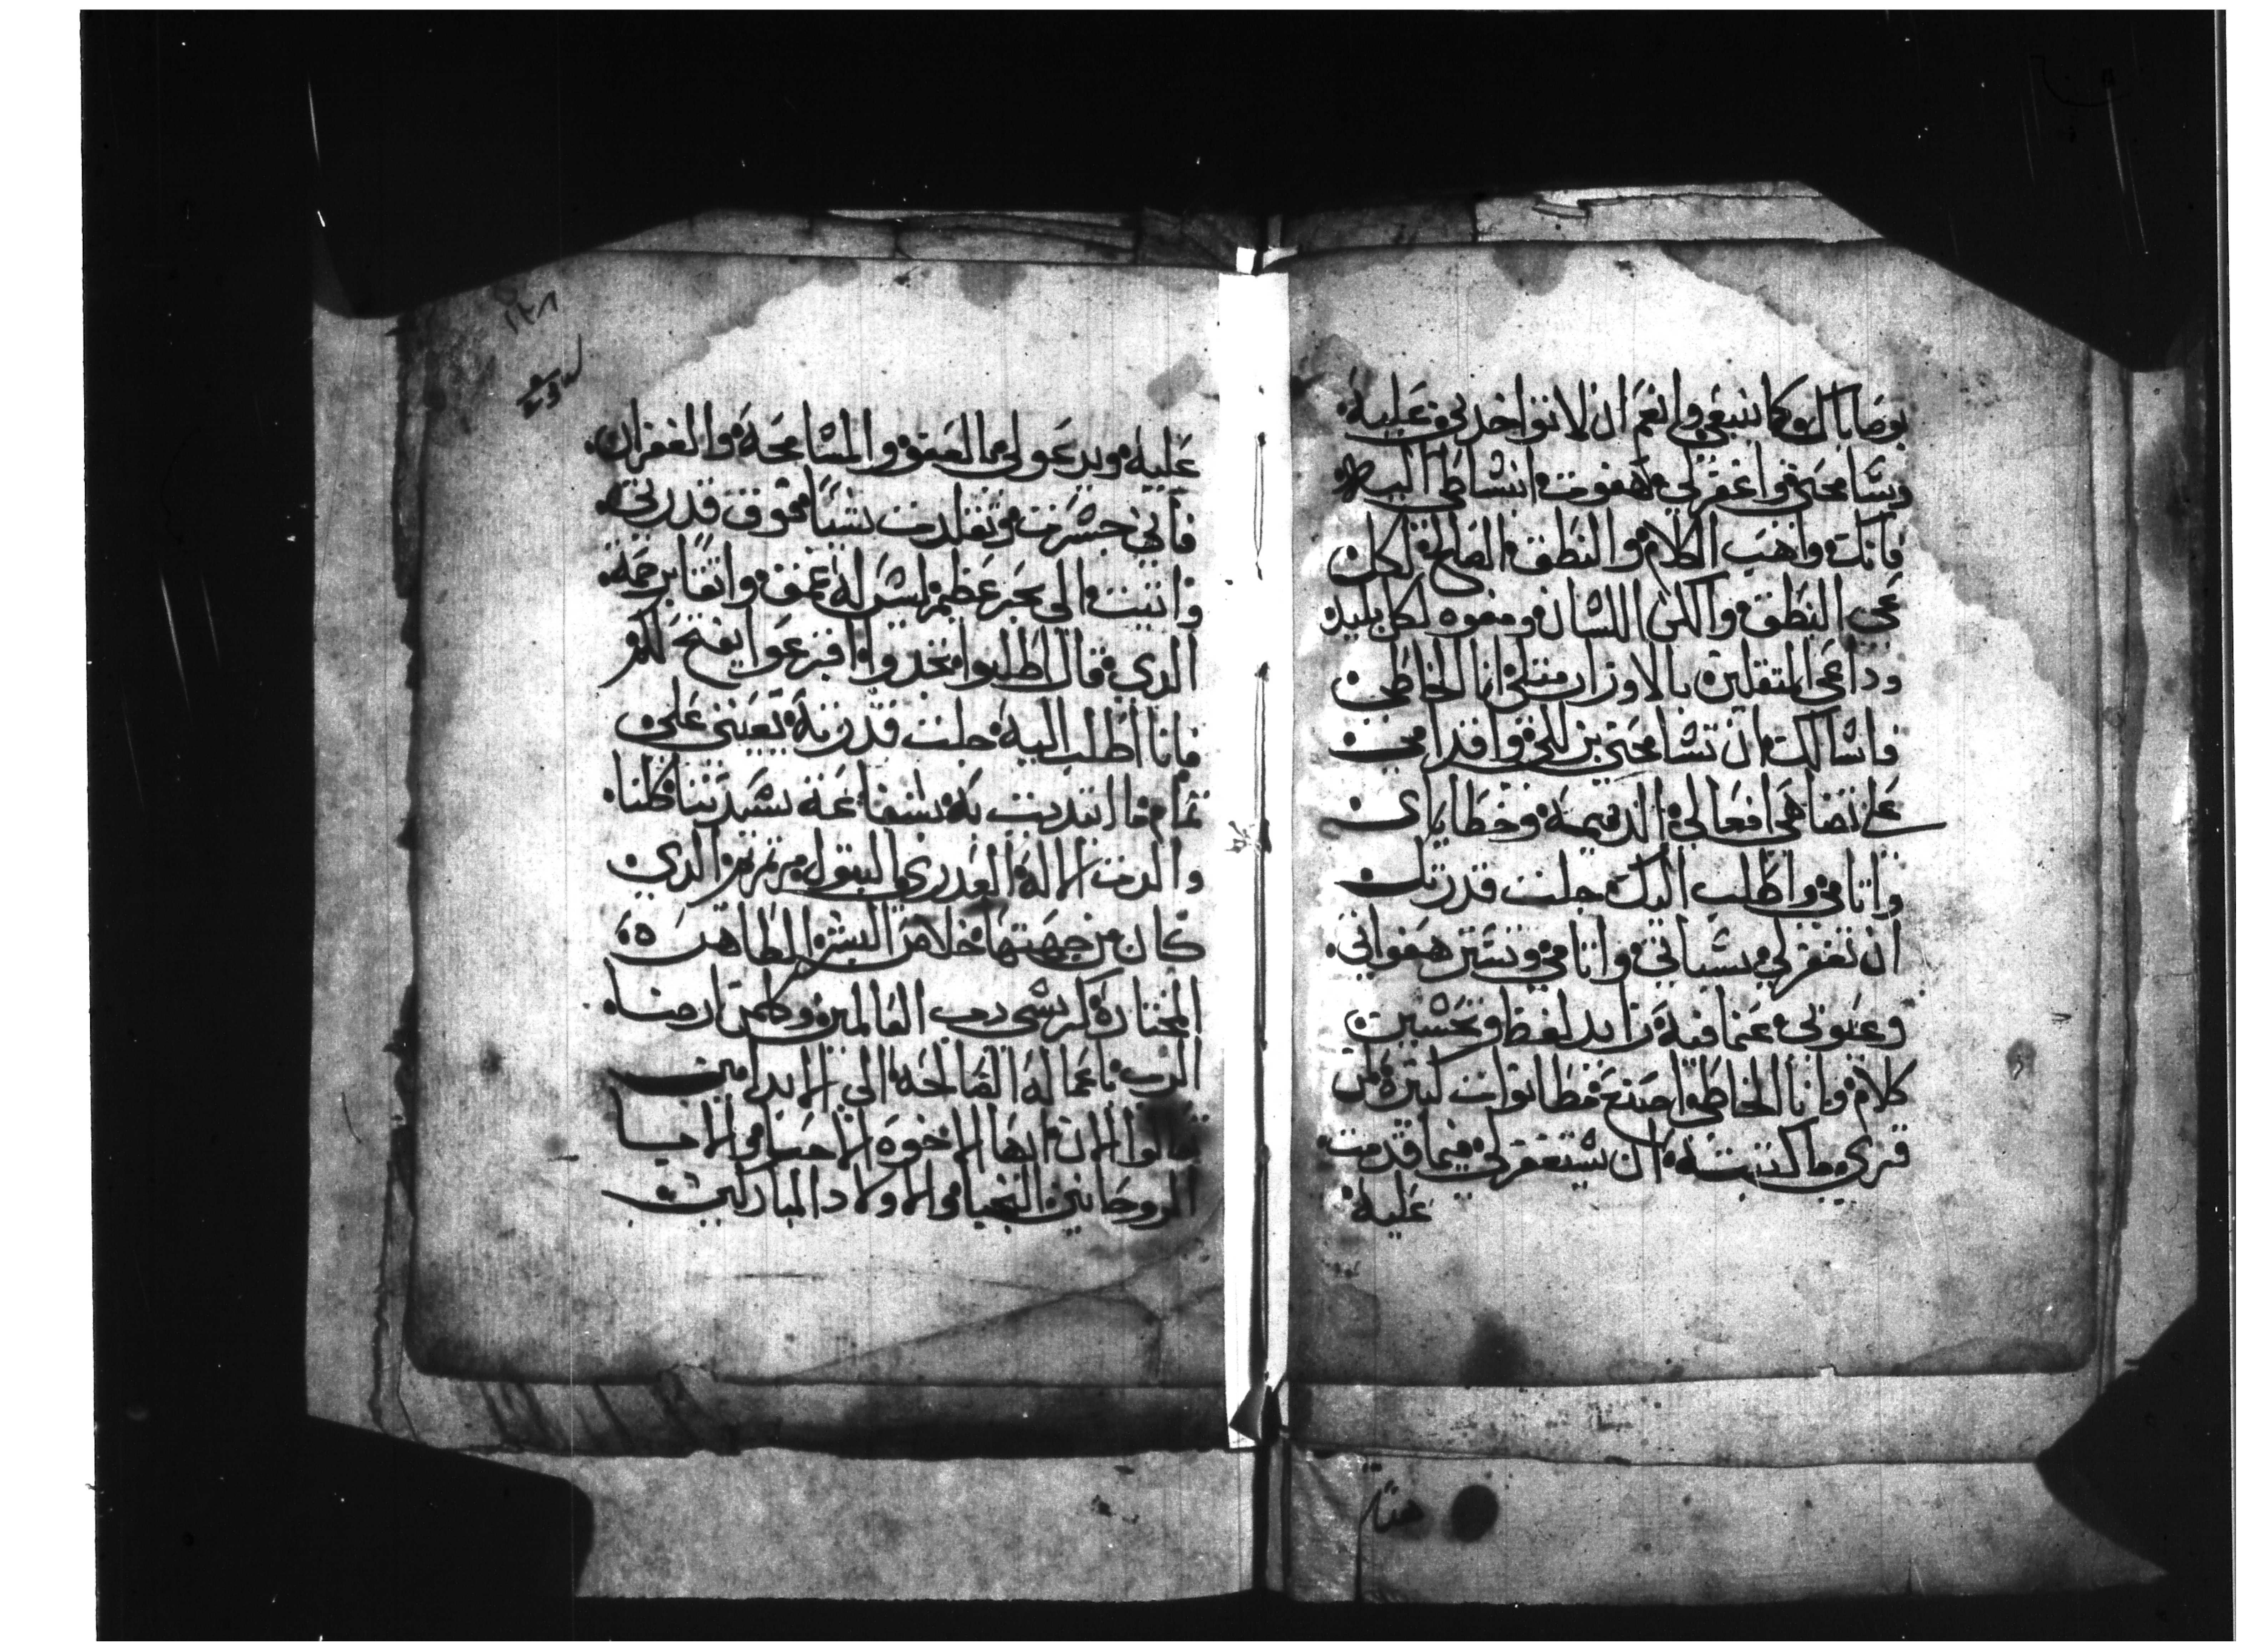 بوصاياك كما ينبغي وانعم ان لا تواخدني عليه
وسامحني واغفر لي هفوت انشاطي اليه
فانك واهب الكلام والنطق الصالح لكل
عي النطق والكن اللسان ومفوه لكل بليد
وداعي المتقلين بالاوزار متلي انا الخاطي
واسالك ان تسامحني بزللي واقدامي
على تضاهي افعالي الدميمة وخطاياي
واتامي واطلب اليك جلت قدرتك
ان تغفر لي سياتي واتامي وتستر هفواتي
وعيوبي عما فيه زايد لفظ وتحسين
كلام وانا الخاطي اصنع مطانوات كتيرة لمن
قري ما كتبته ان يستغفر لي فيما قدمت
عليه
١٢٨
عليه ويدعو لي بالعفو والمسامحة والغفران
فاني جسرت وتقلدت شيا فوق قدرتي
واتيت الى بحر عظيم ليس له عمق واتقا برحمة
الدي قال اطلبوا تجدوا اقرعوا يفتح لكم
فانا اطلب اليه جلت قدرته يعينني على
تمام ما ابتديت به بشفاعة سيدتنا كلنا
والدت الاله العدري البتول مرتمريم الدي
كان من جهتها خلاص البشر الطاهرة
المختارة كرسي رب العالمين وكلمن ارضا
الرب باعماله الصالحة الى الابد امين
تعالوا الان ايها الاخوة الاحبا والاحبا
الروحانيين النجبا والاولاد المباركين